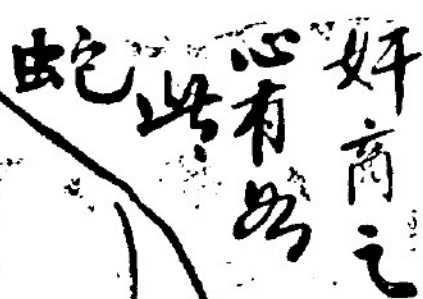 奸商之
心有如
此
蛇